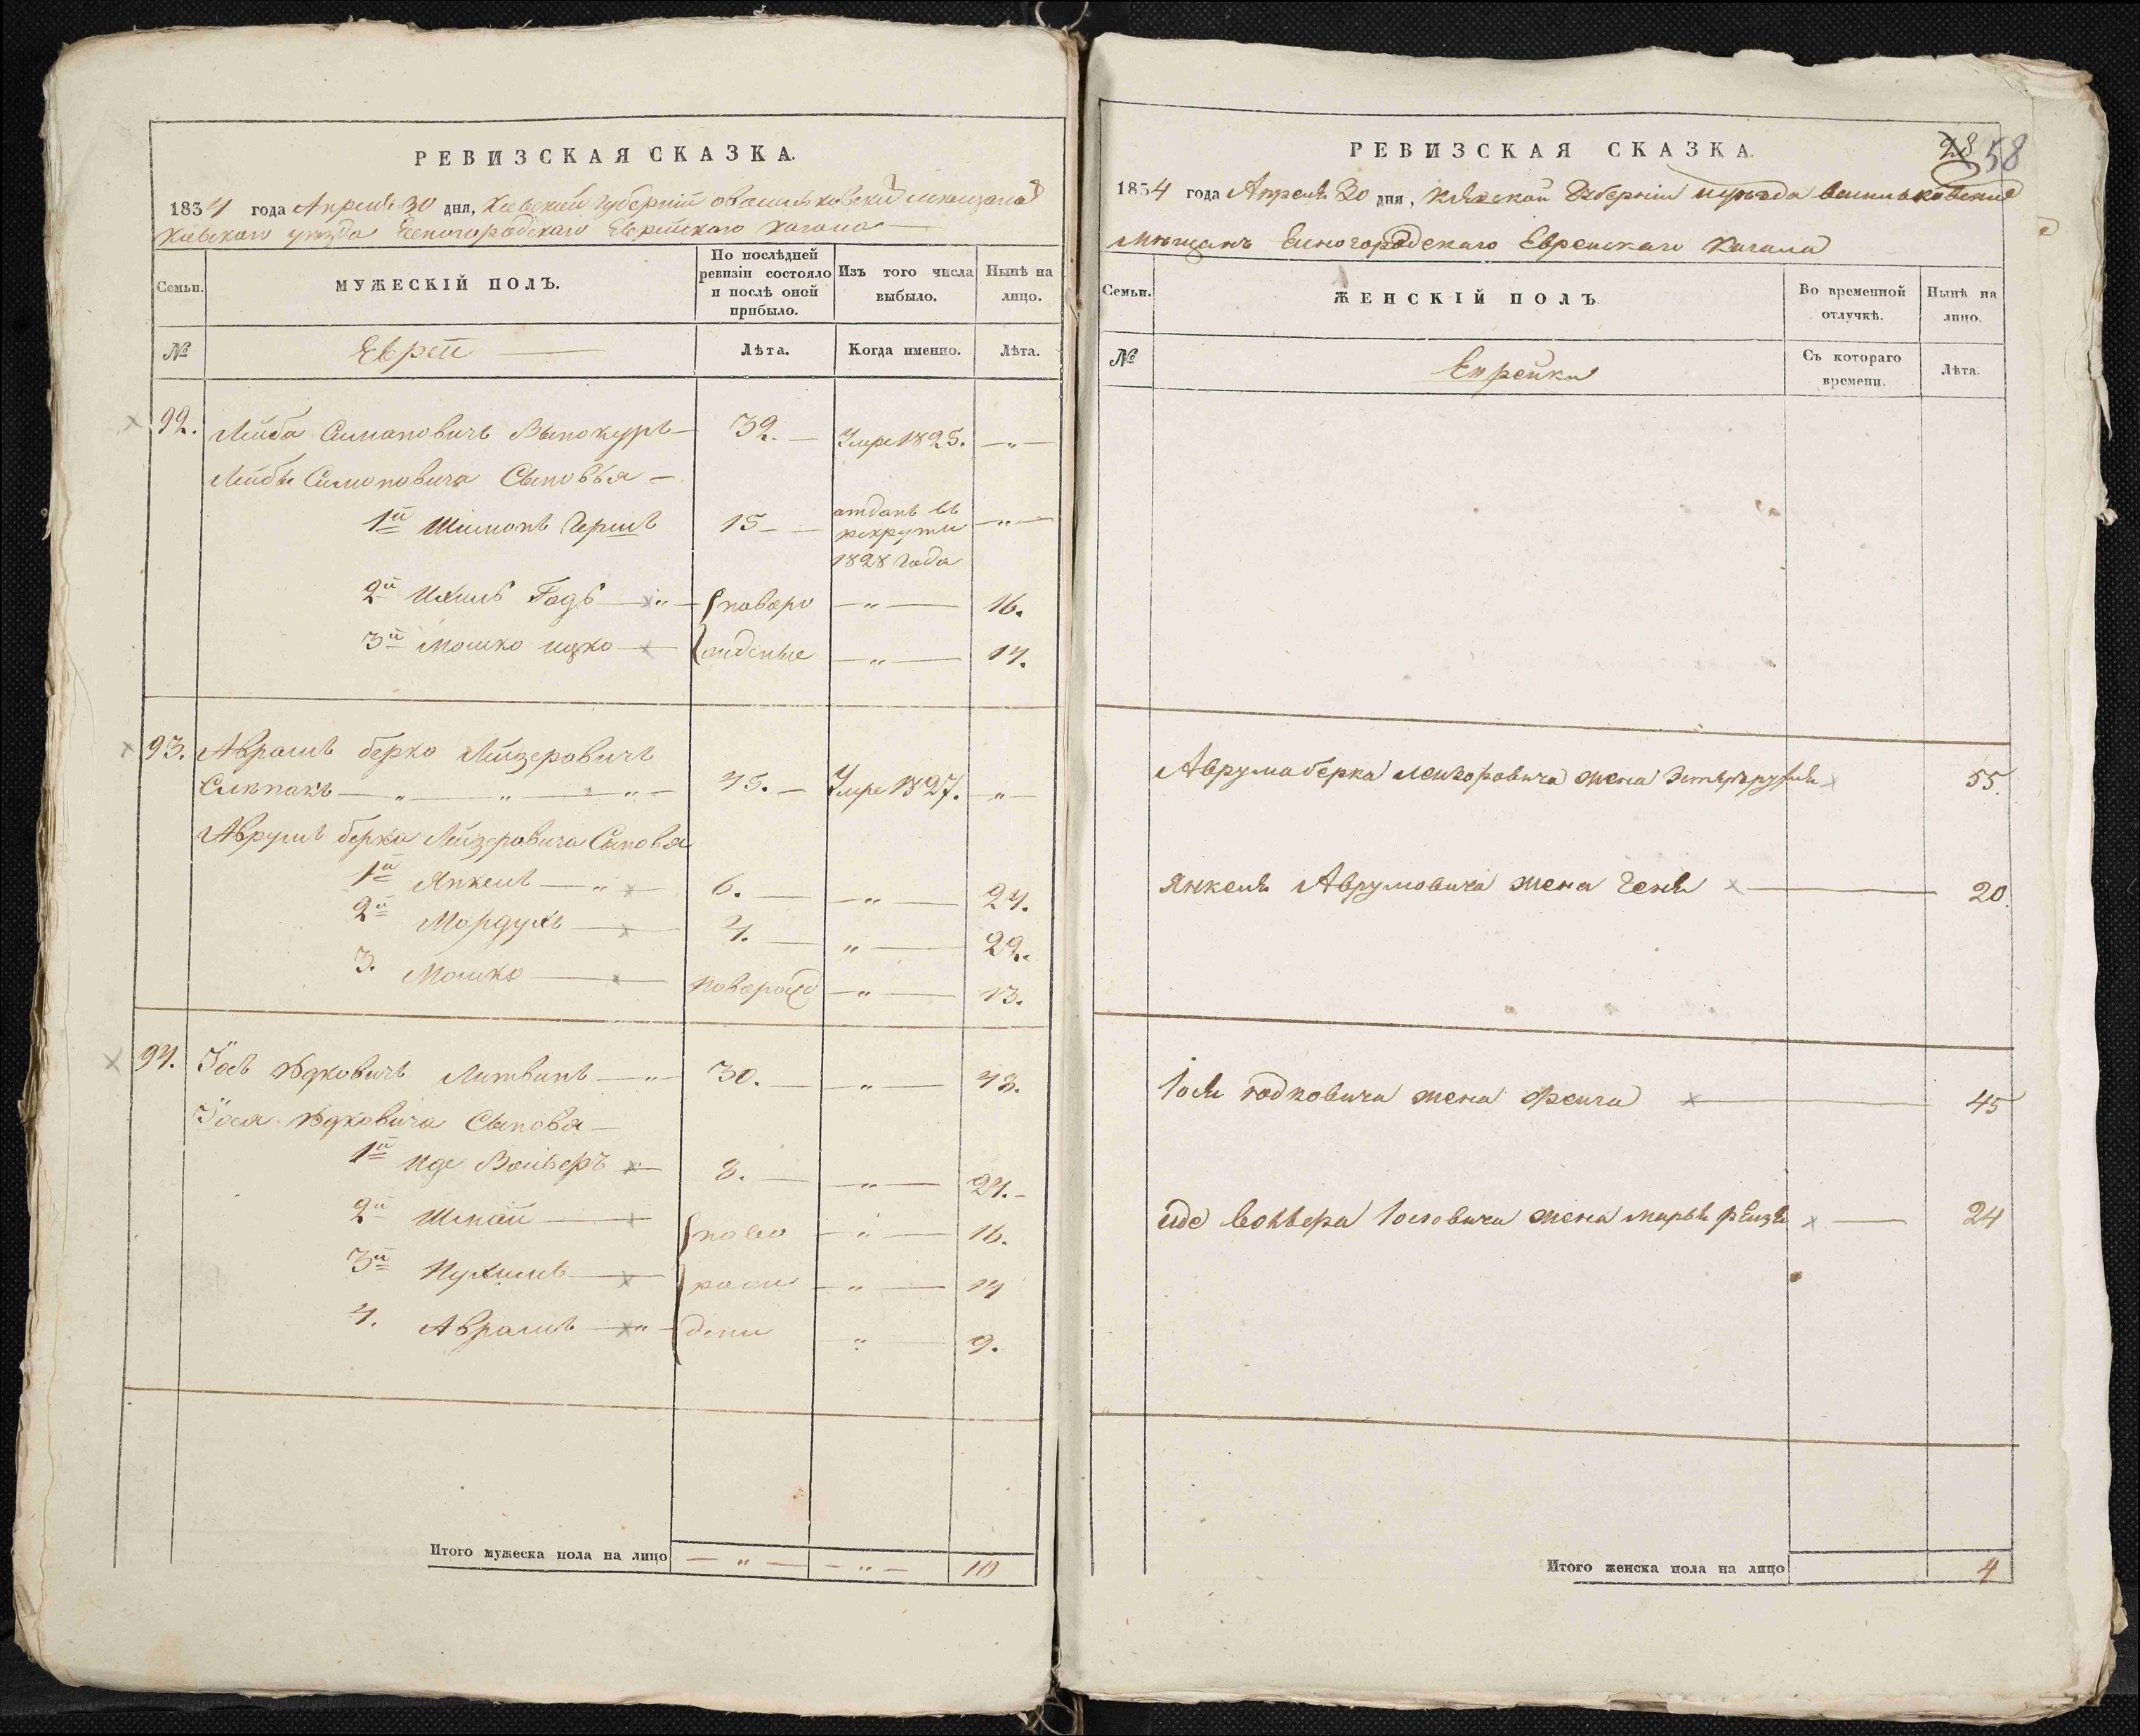 РЕВИЗСКАЯ СКАЗКА.
1834 года Апреля 30 дня, Киевской Губернии о васильковский мещанах
Киевского уезда Белогородскаго Еврейскаго Кагала
Семьи. МУЖЕСКІЙ ПОЛЪ. По послѣдней ревизіи состояло и послѣ оной прибыло. Изъ того числа выбыло. Нынѣ на лицо.
№ Евреи Лѣта. Когда именно. Лѣта.
92. Лейба Симановичъ Винокуръ 32. Умре 1825. "
Лейбы Симоновича Сыновья
1й Шимонъ Гершъ 15 отданъ въ рекруты 1828 года "
2й Ихиль Гадъ новоро " 16.
3й Мошко ицко жденые " 14.
93. Аврамъ берко Лейзеровичъ
Слѣпакъ " " " 45. Умре 1827. "
Аврумъ берка Лейзеровича Сыновья
1й Янкель " 6. " 24.
2й Мордухъ 4. " 22.
3. Мошко новорож " 13.
94. Іосъ Юдковичъ Литвинъ " 30. " 43.
Іося Юдковича Сыновья
1й Иде Вольверъ 8. " 24.
2й Шмай ново " 16.
3й Нухимъ рож " 14
4. Аврамъ " дени " 9.
Итого мужеска пола на лицо " " 10
РЕВИЗСКАЯ СКАЗКА.
28 58
1834 года Апреля 30 дня, Киевской Губернии и уезда васильковские
Мещанъ Белогородскаго Еврейскаго Кагала
Семьи. ЖЕНСКІЙ ПОЛЪ. Во временной отлучкѣ. Нынѣ на лицо.
№ Еврейки Съ котораго времени. Лѣта.
Аврума берка лейзоровича жена 55.
Янкеля Аврумовича жена Геня 20.
Іося юдковича жена фейга 45
иде волвера Іосиовича жена марья рейзя 24
Итого женска пола на лицо 4